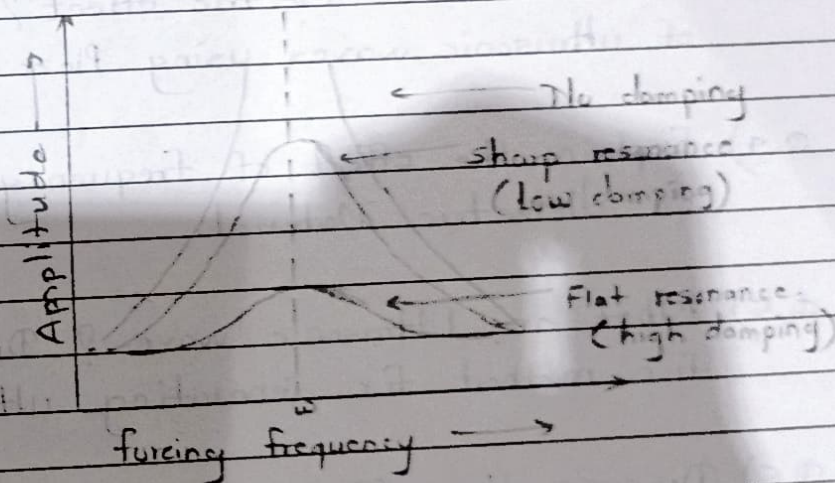 Amplitude
No damping
sharp resonance
(low damping)
Flat resonance
(high damping)
ω
forcing frequency